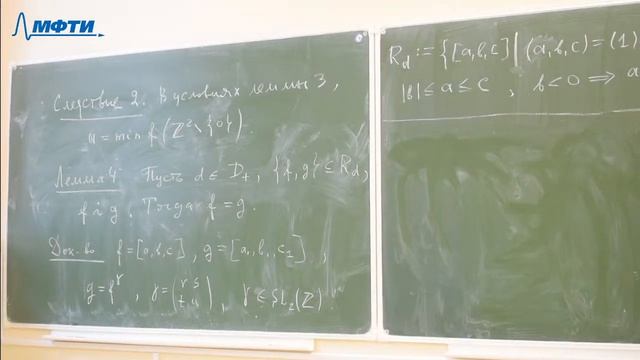 МФТИ
Следствие 2. В условиях леммы 3,
a = min f(ℤ²∖{0}).
Лемма 4. Пусть d ∈ D₊, {f, g} ⊆ R_d,
f ~ g. Тогда f = g.
Док-во f = [a, b, c], g = [a₁, b₁, c₁],
g = f^γ, γ = (r s
t u), γ ∈ SL₂(ℤ).
R_d := {[a, b, c] | (a, b, c) = (1)
|b| ≤ a ≤ c, b < 0 ⟹ a